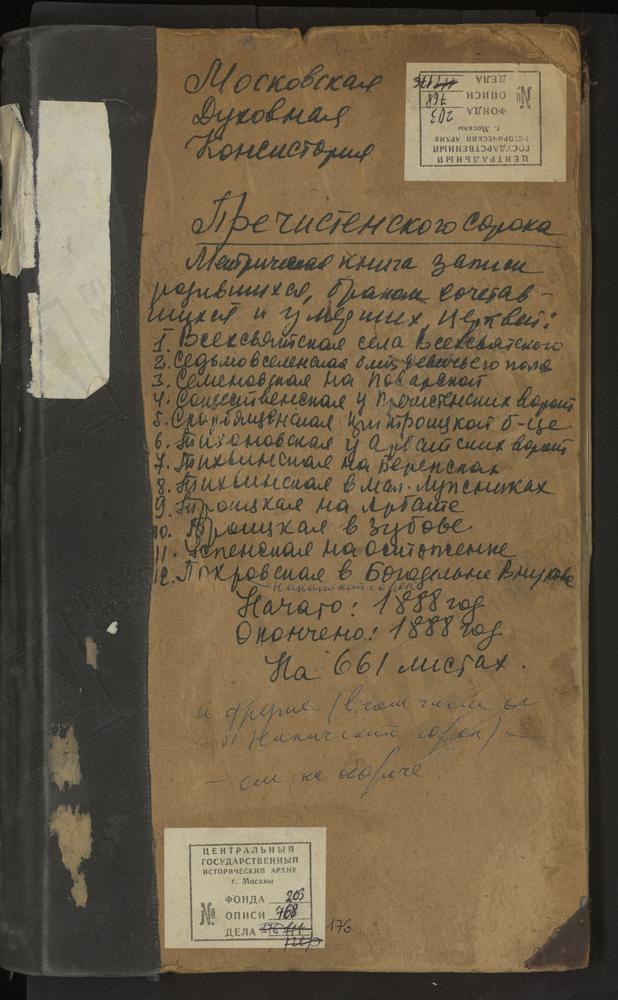 Московская
Духовная
Консистория
ЦЕНТРАЛЬНЫЙ
ГОСУДАРСТВЕННЫЙ
ИСТОРИЧЕСКИЙ АРХИВ
г. Москвы
ФОНДА 203
№ ОПИСИ 768
ДЕЛА
Пречистенского сорока
Метрическая книга записи
родившихся, браком сочетав-
шихся и умерших церквей:
1. Всехсвятская села Всехсвятского
2. Седьмовселенская близ девичьего поля
3. Семеновская на Поварской
4. Сошественская у Пречистенских ворот
5. Скорбященская при троицкой б-це
6. Тихоновская у Арбатских ворот
7. Тихвинская на Бережках
8. Тихвинская в мал. Лужниках
9. Троицкая на Арбате
10. Троицкая в Зубове
11. Успенская на Остоженке
12. Покровская в Богадельне
Никитский сорок
Начато: 1888 год
Окончено: 1888 год
На 661 листах.
и другие (в том числе
Никитский сорок) —
— см на обороте
ЦЕНТРАЛЬНЫЙ
ГОСУДАРСТВЕННЫЙ
ИСТОРИЧЕСКИЙ АРХИВ
г. Москвы
ФОНДА 203
№ ОПИСИ 768
ДЕЛА 176